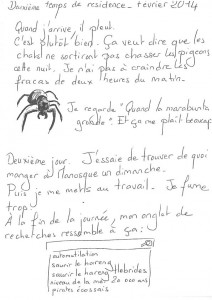 Deuxième temps de résidence - février 2014
Quand j'arrive, il pleut.
C'est plutôt bien. Ça veut dire que les
chats ne sortiront pas chasser les pigeons
cette nuit. Je n'ai pas à craindre les
fracas de deux heures du matin.
Je regarde "Quand la marabunta
gronde". Et ça me plaît beaucoup
Deuxième jour. J'essaie de trouver de quoi
manger à Manosque un dimanche.
Puis je me mets au travail. Je fume
trop.
À la fin de la journée, mon onglet de
recherches ressemble à ça:
automutilation
sourire le hareng
sourire le hareng Hébrides
niveau de la mer 20 000 ans
pirates écossais